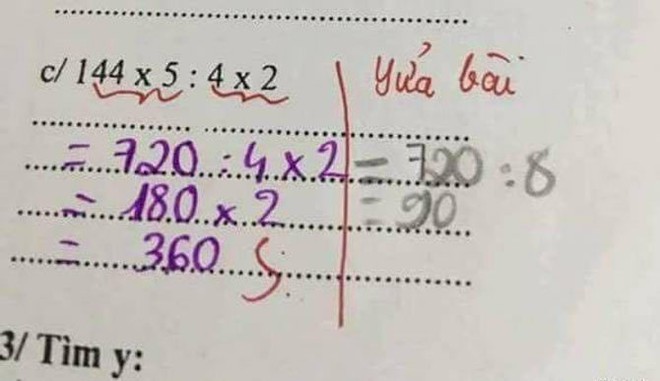 c/ 144 x 5 : 4 x 2
= 720 : 4 x 2
= 180 x 2
= 360 S
Yửa bài
= 720 : 8
= 90
3/ Tìm y: